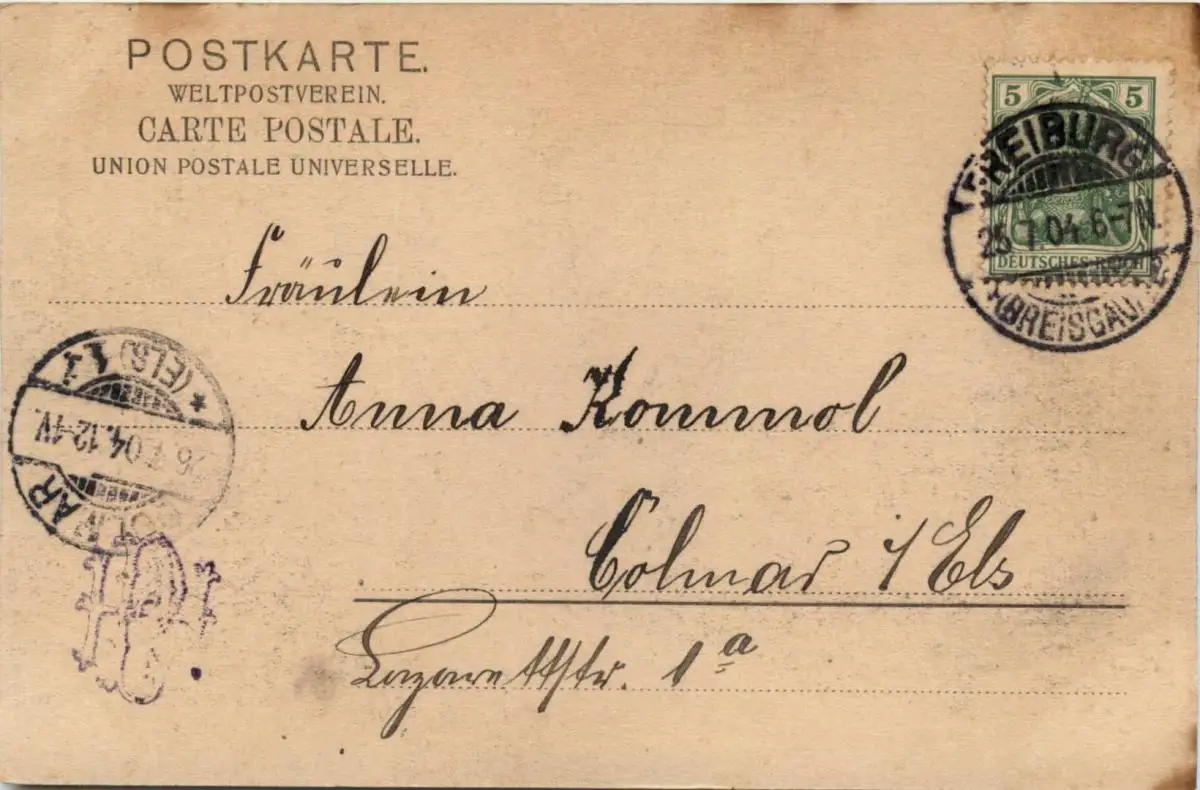 POSTKARTE.
WELTPOSTVEREIN.
CARTE POSTALE.
UNION POSTALE UNIVERSELLE.
5 5
DEUTSCHES REICH
FREIBURG
25.7.04.6-7N.
(BREISGAU)
Fräulein
Anna Kommol
Colmar i/Els
Lazarettstr. 1a
COLMAR
26.7.04.12-1V.
* (ELS) 1